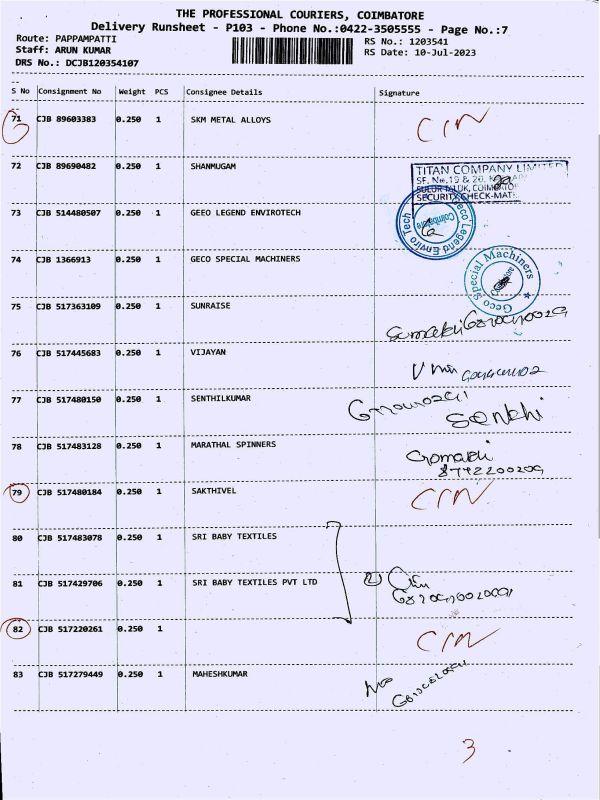 THE PROFESSIONAL COURIERS, COIMBATORE
Delivery Runsheet - P103 - Phone No.:0422-3505555 - Page No.:7
Route: PAPPAMPATTI
Staff: ARUN KUMAR
DRS No.: DCJB120354107
RS No.: 1203541
RS Date: 10-Jul-2023
S No Consignment No Weight PCS Consignee Details Signature
71 CJB 89603383 0.250 1 SKM METAL ALLOYS CIN
72 CJB 89690482 0.250 1 SHANMUGAM
TITAN COMPANY LIMITED
SF. No.19 & 20,
SULUR TALUK, COIMBATO
SECURITY CHECK-MATE
73 CJB 514480507 0.250 1 GEEO LEGEND ENVIROTECH
Geco Legend Enviro Tech
Coimbatore
74 CJB 1366913 0.250 1 GECO SPECIAL MACHINERS
Geco Special Machiners
75 CJB 517363109 0.250 1 SUNRAISE
76 CJB 517445683 0.250 1 VIJAYAN
77 CJB 517480150 0.250 1 SENTHILKUMAR
78 CJB 517483128 0.250 1 MARATHAL SPINNERS Gomathi
79 CJB 517480184 0.250 1 SAKTHIVEL CIN
80 CJB 517483078 0.250 1 SRI BABY TEXTILES
81 CJB 517429706 0.250 1 SRI BABY TEXTILES PVT LTD 2
82 CJB 517220261 0.250 1 CIN
83 CJB 517279449 0.250 1 MAHESHKUMAR
3